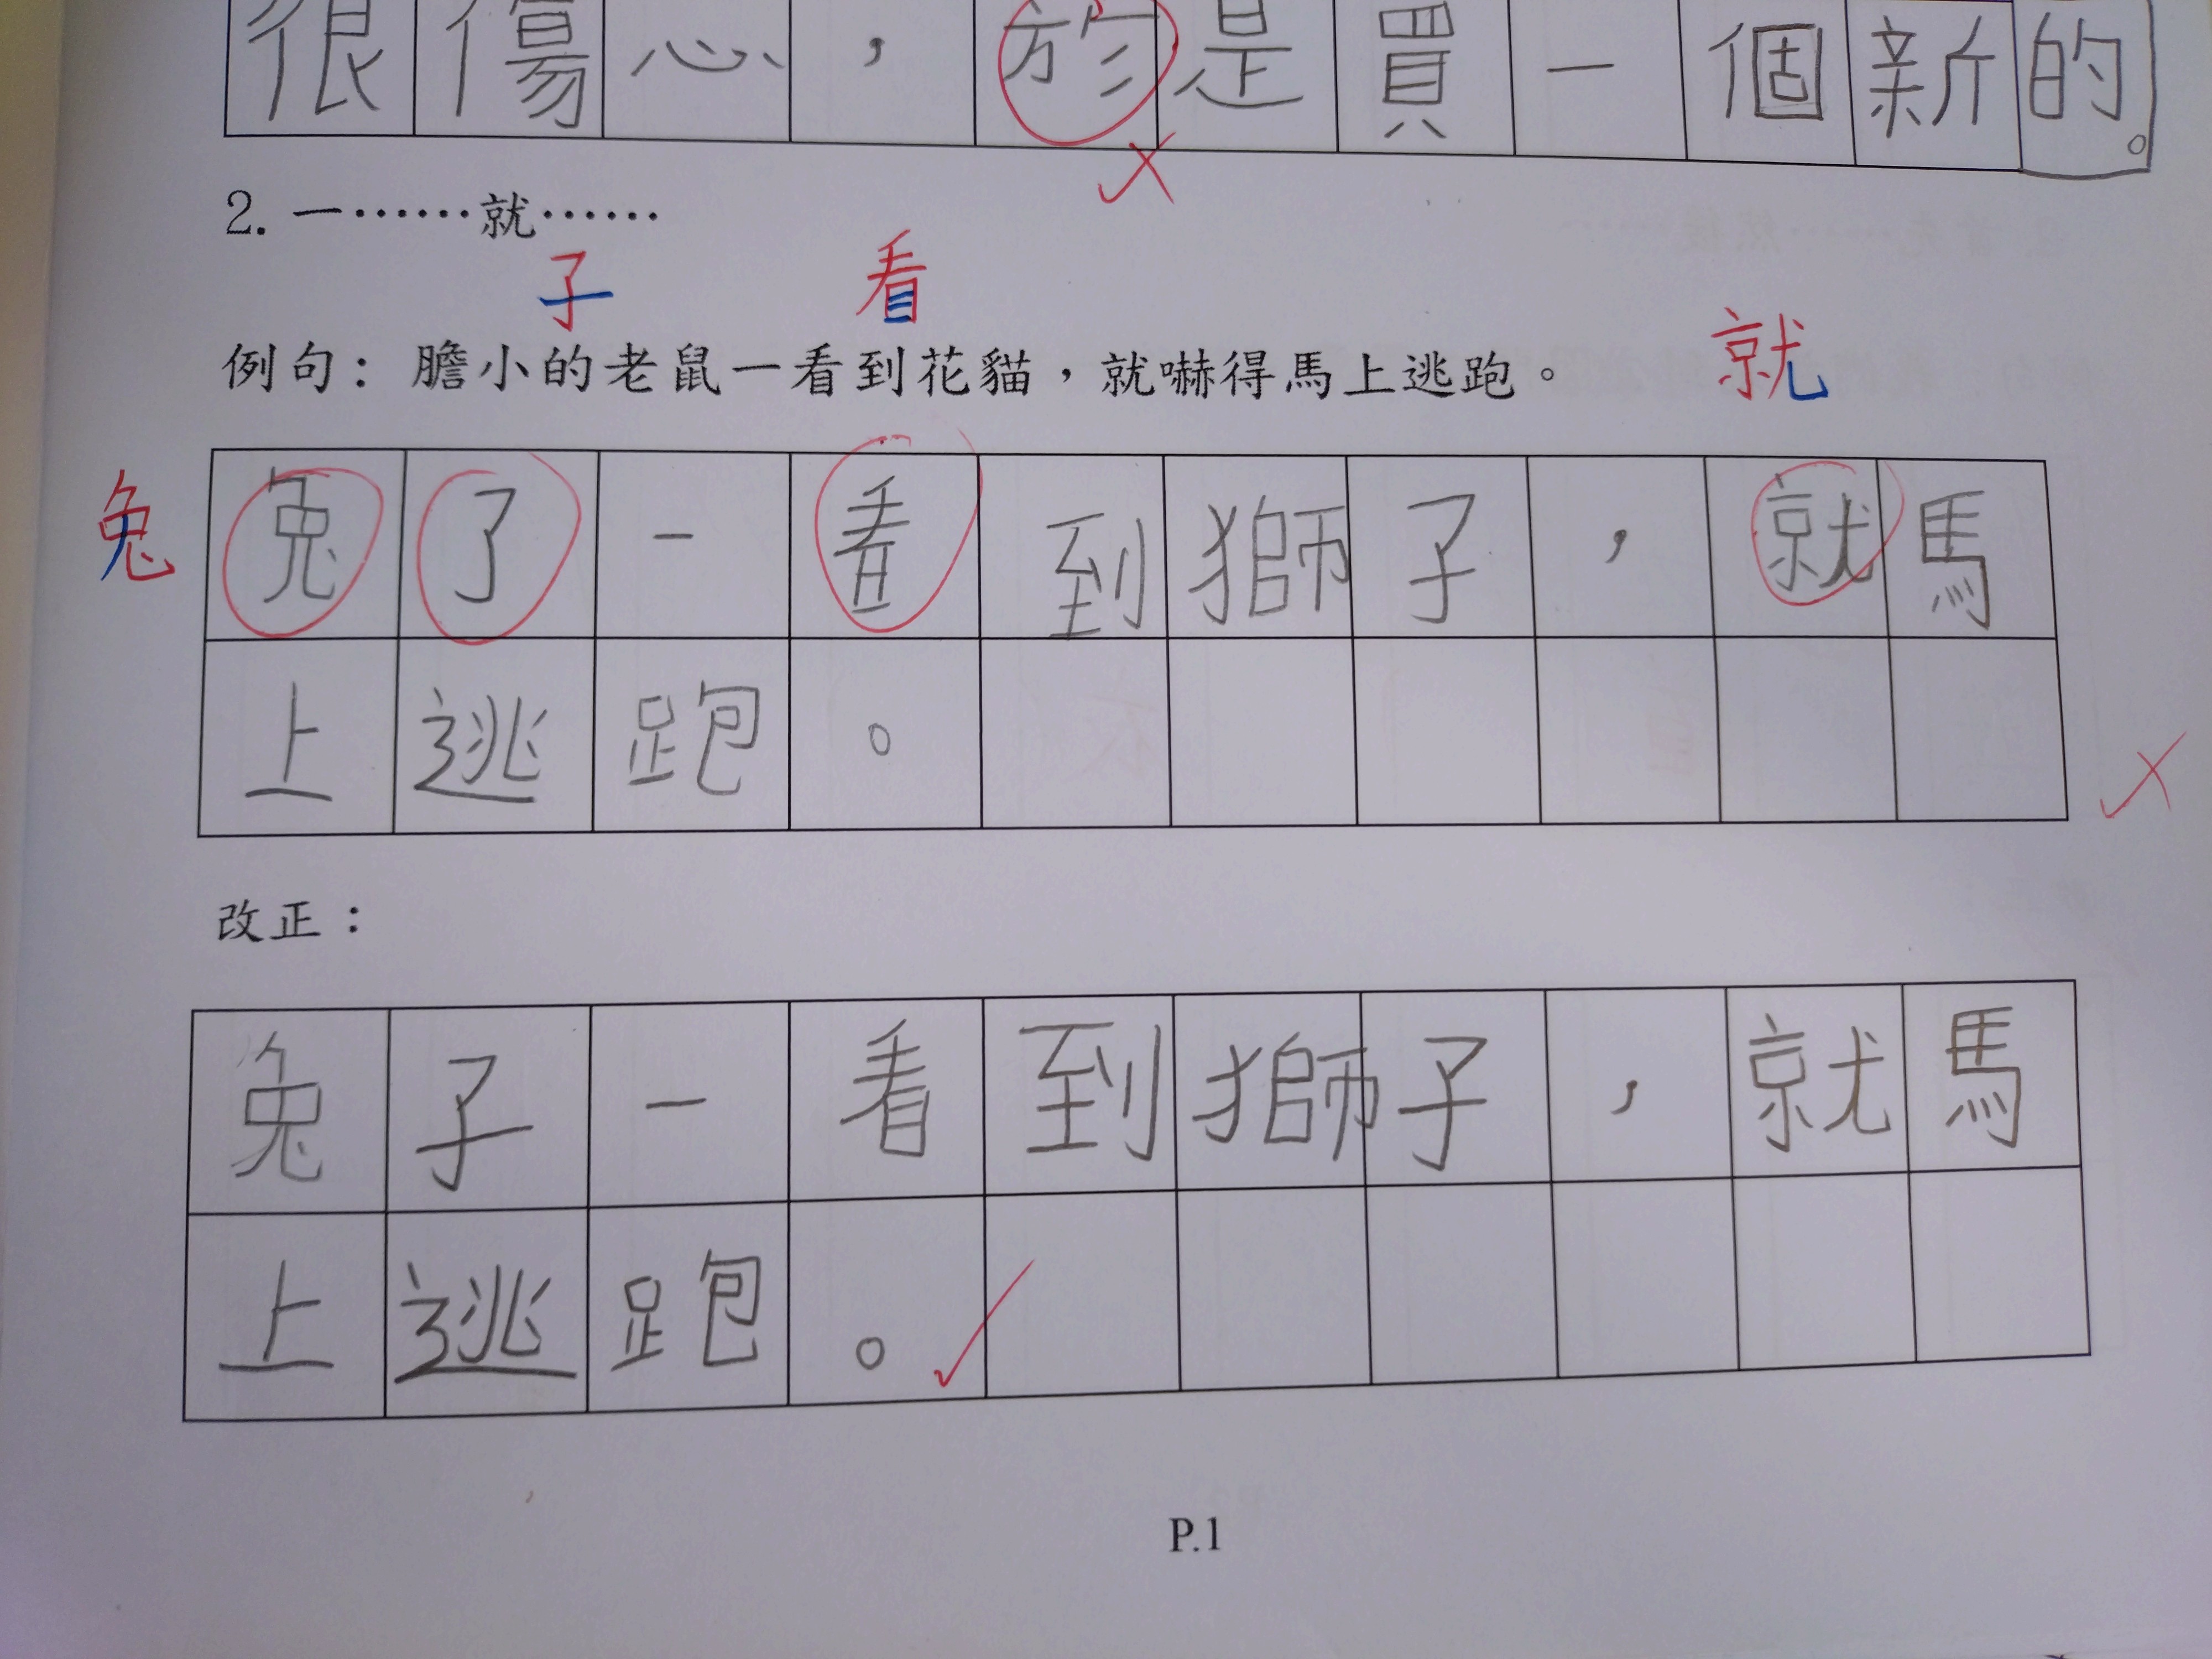 很傷心，於是買一個新的。
2. 一……就……
子 看
就
例句：膽小的老鼠一看到花貓，就嚇得馬上逃跑。
兔
兔了一看到獅子，就馬
上逃跑。
改正：
兔子一看到獅子，就馬
上逃跑。
P.1